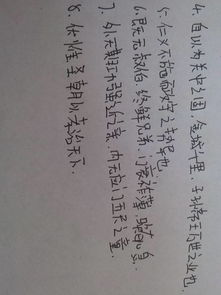 4. 自以为关中之固，金城千里，子孙帝王万世之业也.
5. 仁义不施而攻守之势异也
6. 既无叔伯，终鲜兄弟，门衰祚薄，晚有儿息.
7. 外无期功强近之亲，内无应门五尺之童.
8. 伏惟圣朝以孝治天下.